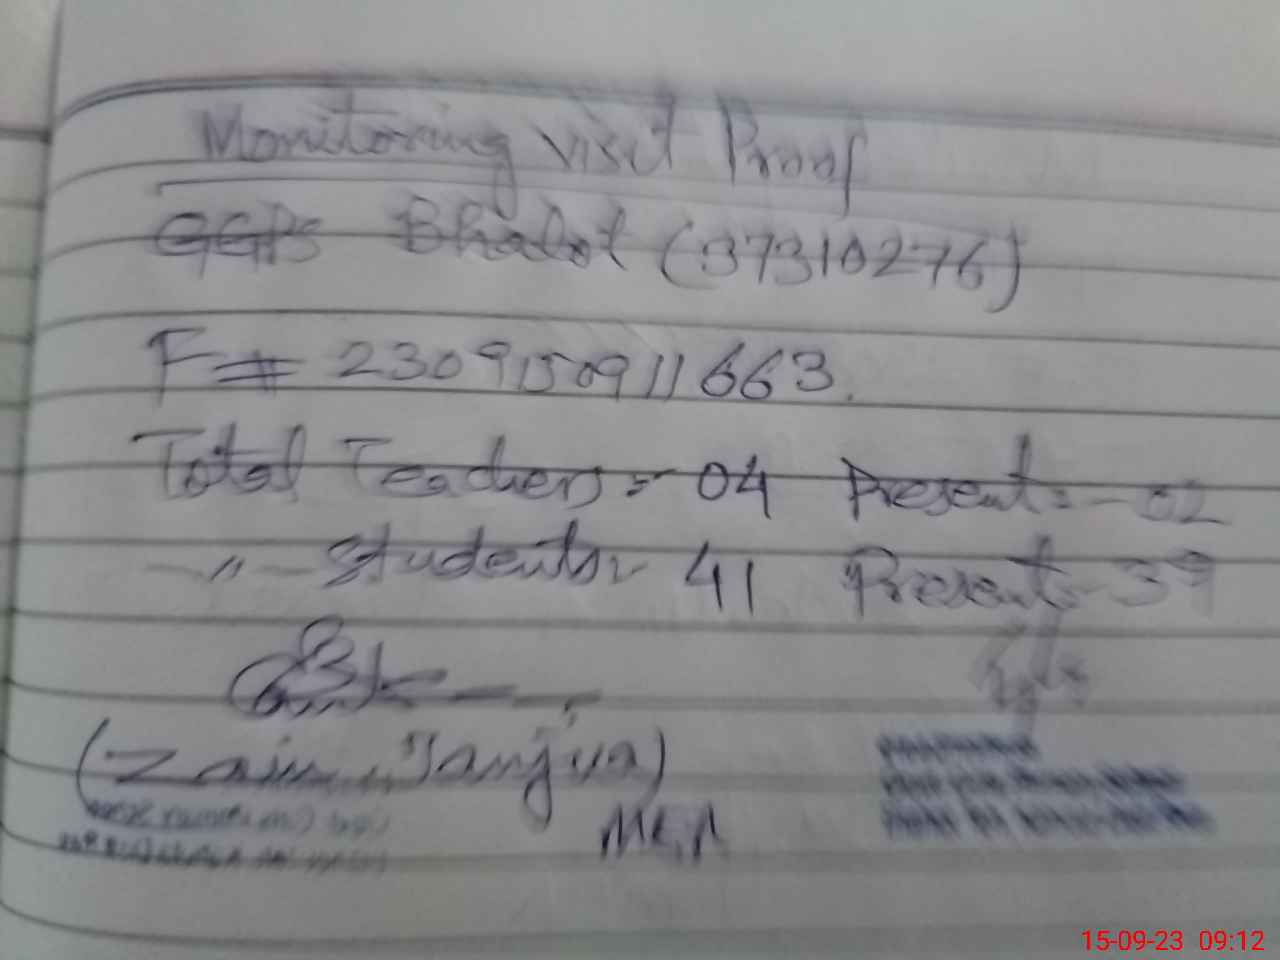 Monitoring Visit Proof
GGPS Bhalot (37310276)
F# 2309150911663.
Total Teachers = 04 Present = 02
—〃— Students = 41 Present = 39
(Zain Janjua)
MEA
15-09-23 09:12